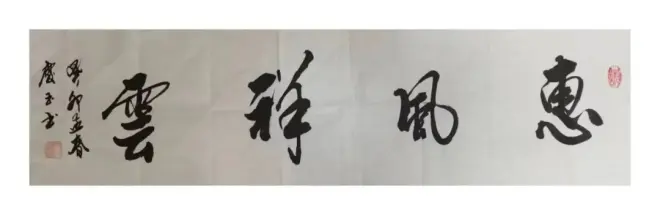 惠風祥雲
癸卯孟春
慶玉書